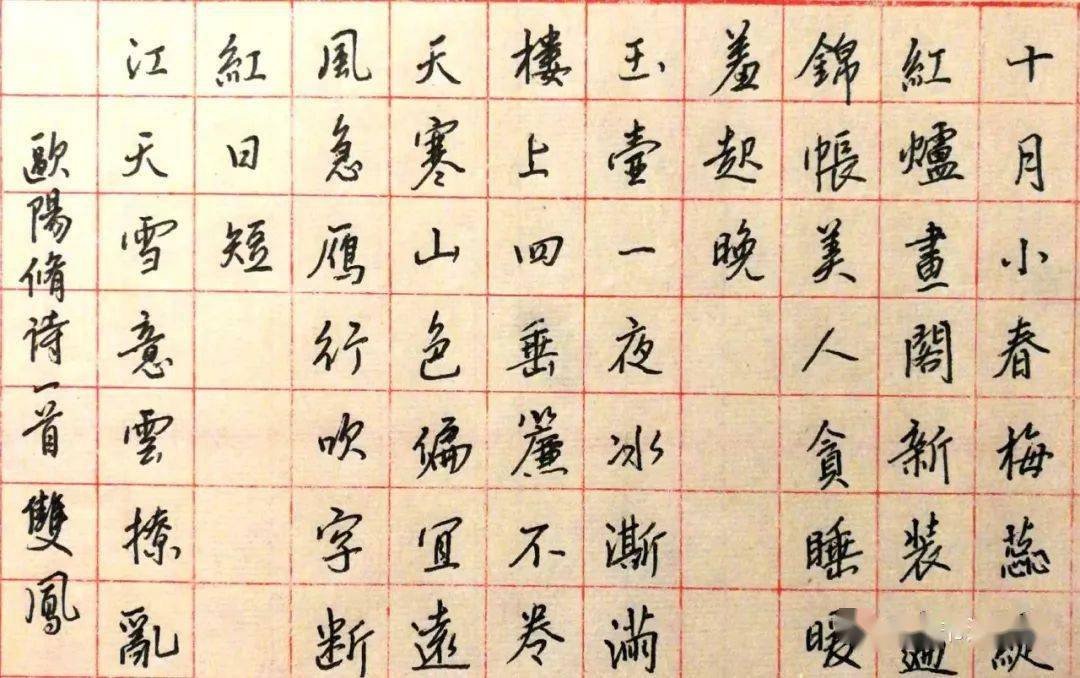 十月小春梅蕊綻
紅爐畫閣新裝遍
錦帳美人貪睡暖
羞起晚
玉壺一夜冰澌滿
樓上四垂簾不卷
天寒山色偏宜遠
風急鴈行吹字斷
紅日短
江天雪意雲撩亂
歐陽脩詩一首 雙鳳